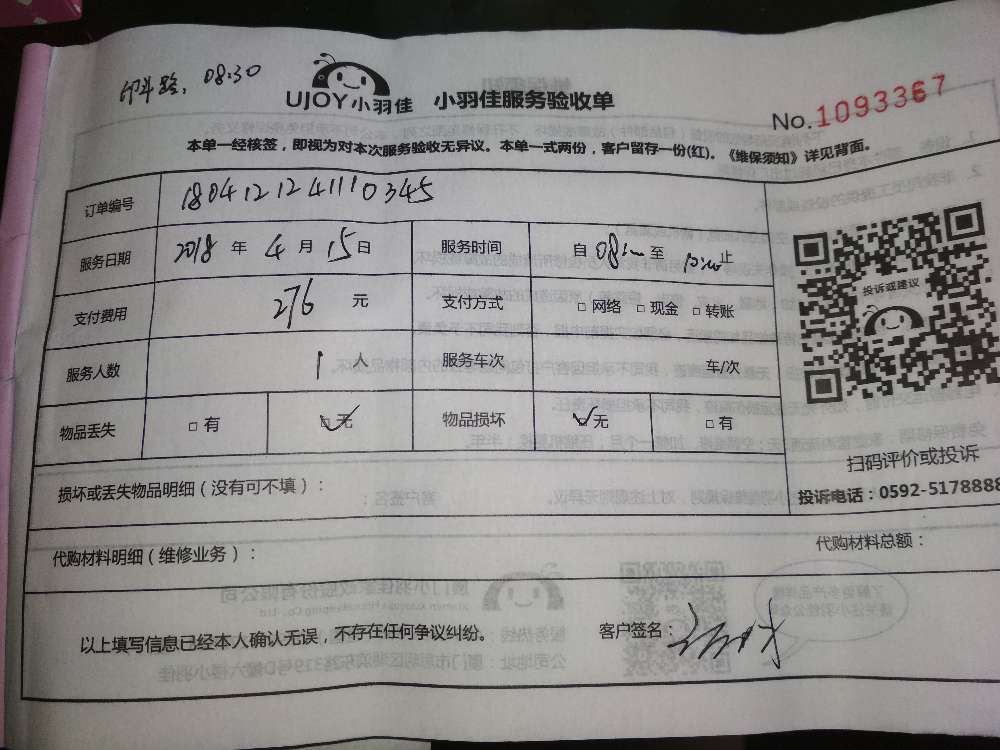 印斗路, 08:30
UJOY小羽佳 小羽佳服务验收单
No.1093367
本单一经核签，即视为对本次服务验收无异议。本单一式两份，客户留存一份(红)。《维保须知》详见背面。
订单编号 18041212411110345
服务日期 2018 年 4 月 15 日 服务时间 自 至 止
支付费用 276 元 支付方式 □ 网络 □ 现金 □ 转账
服务人数 1 人 服务车次 车/次
物品丢失 □ 有 ☑ 无 物品损坏 ☑ 无 □ 有
投诉或建议
扫码评价或投诉
投诉电话：0592-5178888
损坏或丢失物品明细（没有可不填）：
代购材料明细（维修业务）： 代购材料总额：
以上填写信息已经本人确认无误，不存在任何争议纠纷。 客户签名：